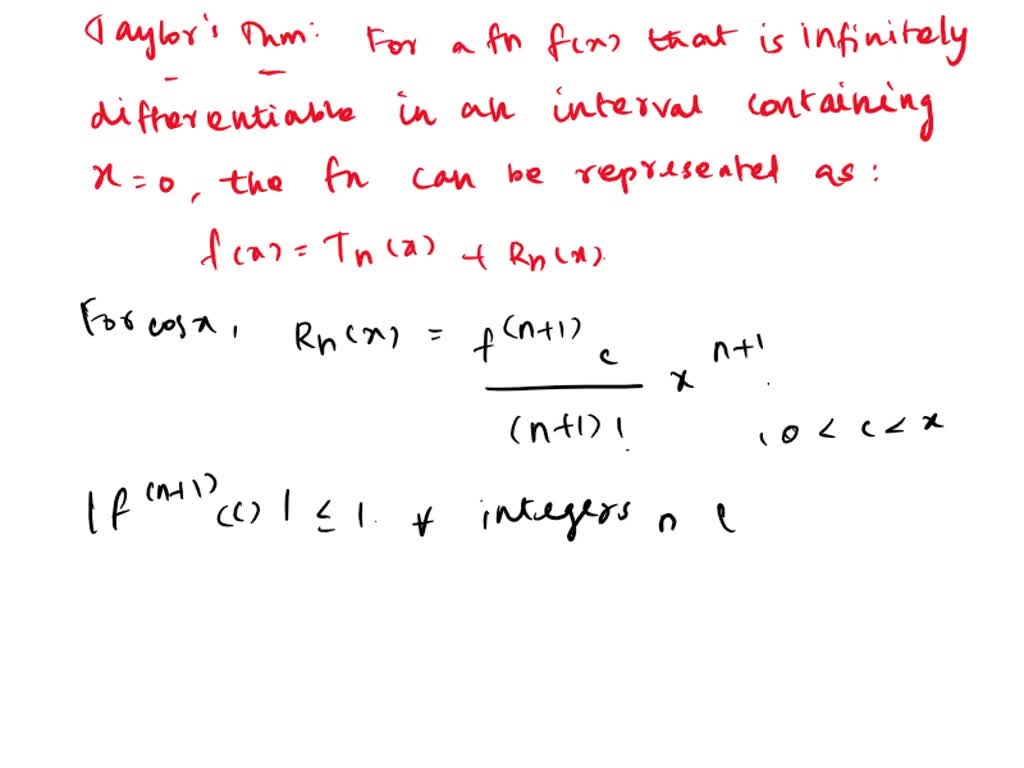 Taylor's Thm: For a fn f(x) that is infinitely
differentiable in an interval containing
x=0, the fn can be represented as:
f(x) = Tn(x) + Rn(x).
For cosx, Rn(x) = f^(n+1) c / (n+1)! x^n+1 , 0 < c < x
|f^(n+1)(c)| ≤ 1. ∀ integers n